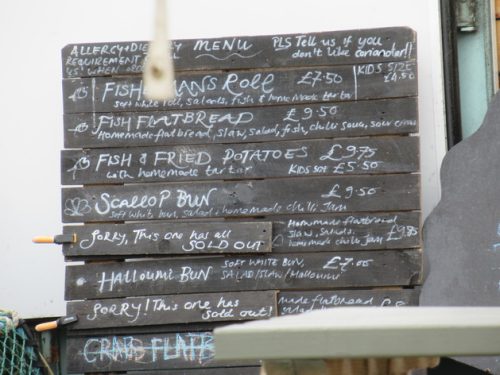 ALLERGY + DIETARY MENU PLS Tell us if you
REQUIREMENT don't like coriander!!
US WHEN
FISHERMANS ROLL £7.50 KIDS SIZE £4.50
soft white roll, salads, fish & homemade tartar
FISH FLATBREAD £9.50
Homemade flatbread, slaw, salad, fish, chilli sauce, sour cream
FISH & FRIED POTATOES £9.75
with homemade tartar KIDS SIZE £5.50
SCALLOP BUN £9.50
Soft white bun, salad & homemade chilli Jam
SORRY, This one has all SOLD OUT
Homemade flatbread
Slaw, Salads,
homemade chilli Jam £9.85
HALLOUMI BUN SOFT WHITE BUN, £7.00
SALAD/SLAW/HALLOUMI
SORRY! This one has Sold out!
made flatbread
CRAB FLATB